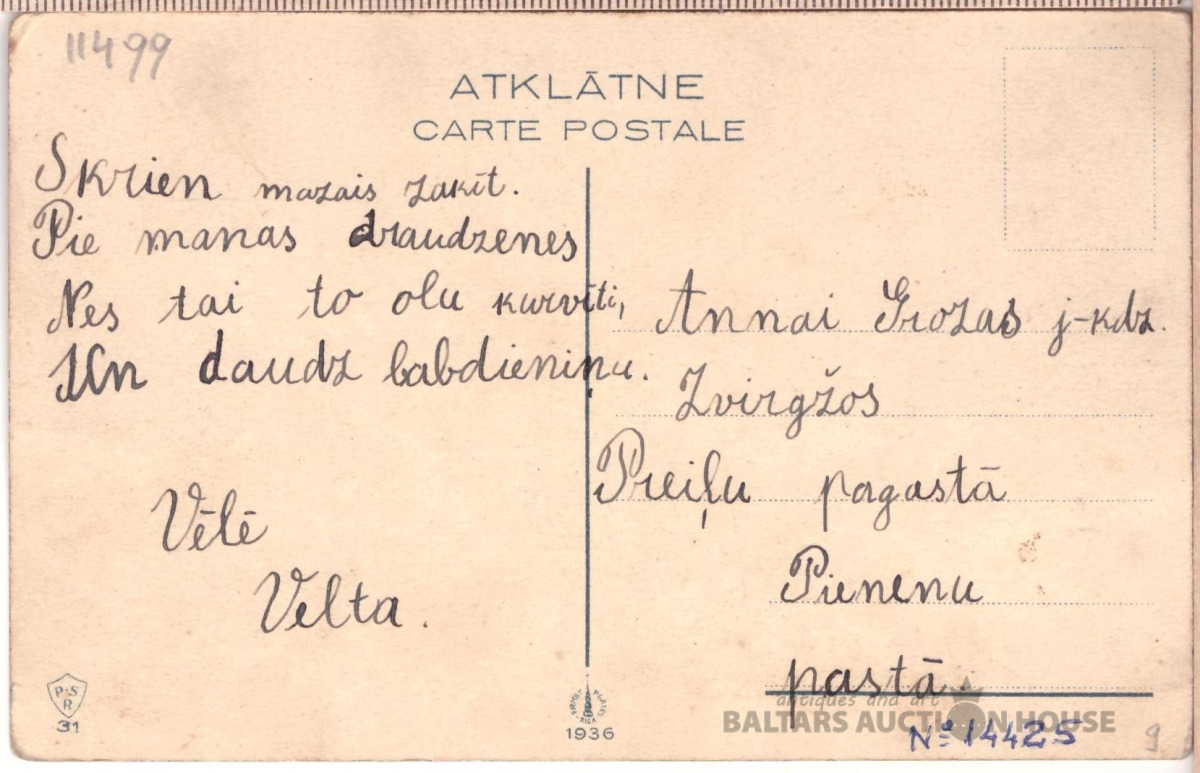 11499
ATKLĀTNE
CARTE POSTALE
Skrien mazais zakīt.
Pie manas draudzenes
Nes tai to olu kurvīti,
Un daudz babdieniņu.
Vēlē
Velta.
Annai Grozas j-kdz.
Zvirgžos
Preiļu pagastā
Pienenu
pastā.
PSR
31
1936
antiques and art
BALTARS AUCTION HOUSE
№ 14425
9